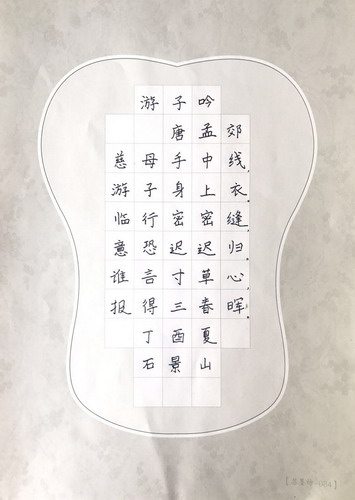 游子吟
唐 孟郊
慈母手中线，
游子身上衣。
临行密密缝，
意恐迟迟归。
谁言寸草心，
报得三春晖。
丁酉夏
石景山